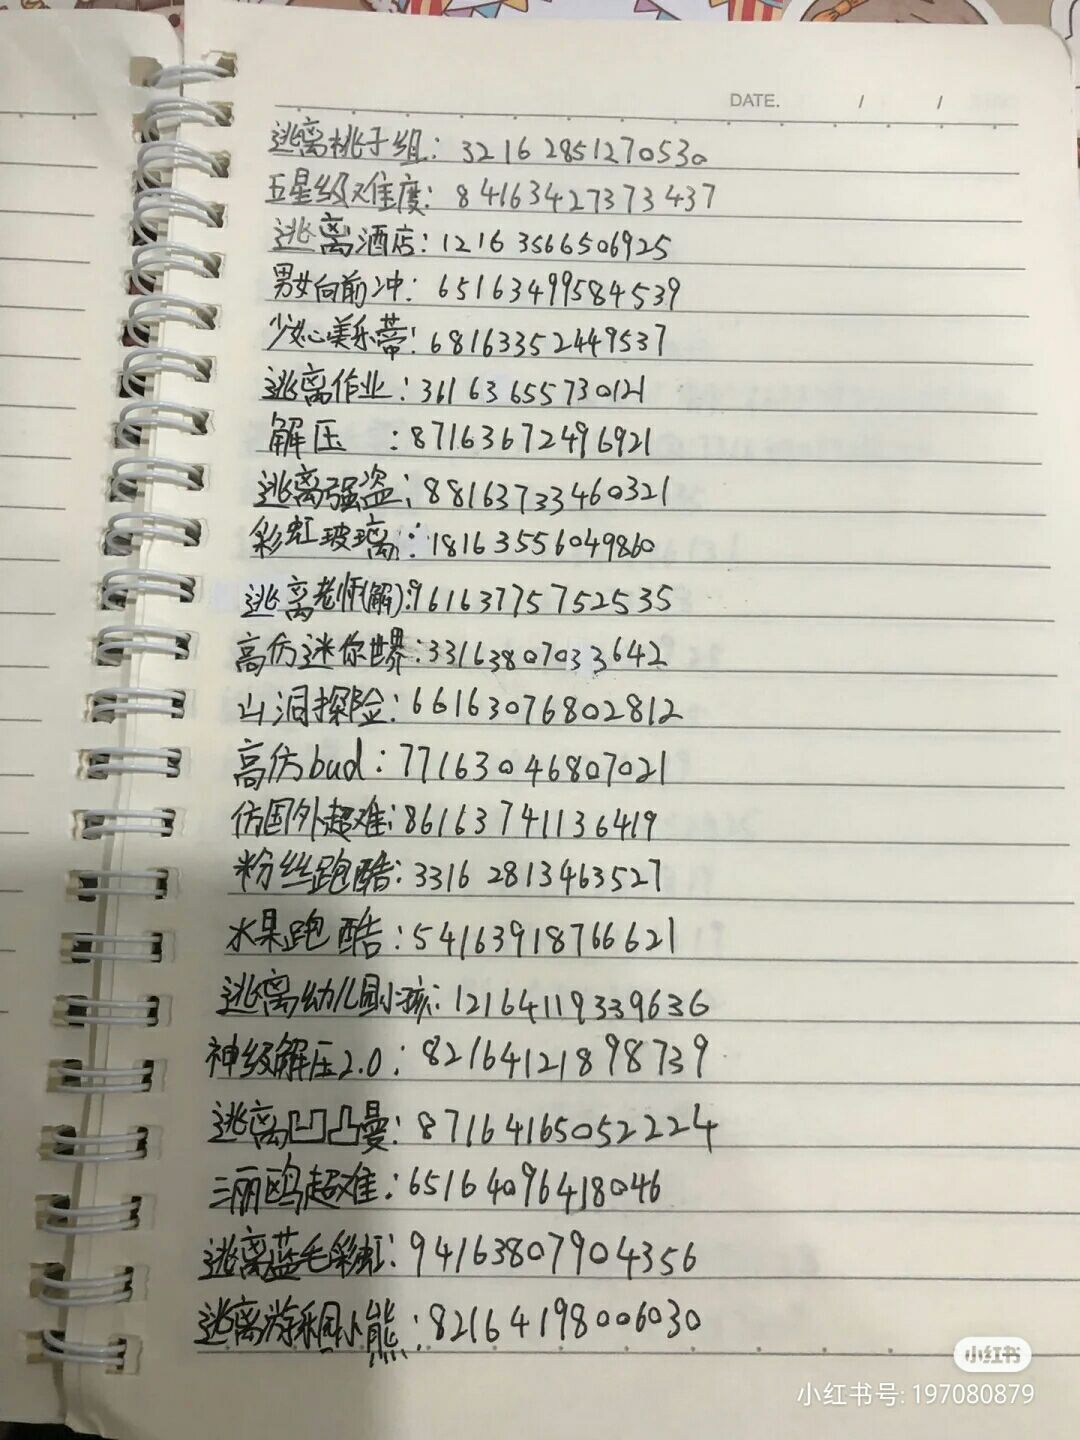 DATE. / /
逃离桃子组：32162851270530
五星级难度：84163427373437
逃离酒店：12163566506925
男女向前冲：65163499584539
少女心美乐蒂：68163352449537
逃离作业：36163655730121
解压：87163672496921
逃离强盗：88163733460321
彩虹玻璃：18163556049860
逃离老师(解)：96163775752535
高仿迷你世界：33163807033642
山洞探险：66163076802812
高仿bud：77163046807021
仿国外超难：86163741136419
粉丝跑酷：33162813463527
水果跑酷：54163918766621
逃离幼儿园小孩：12164119339636
神级解压2.0：82164121898739
逃离凹凸曼：87164165052224
三丽鸥超难：65164096418046
逃离蓝毛彩虹：94163807904356
逃离游乐园小熊：82164198006030
小红书
小红书号: 197080879